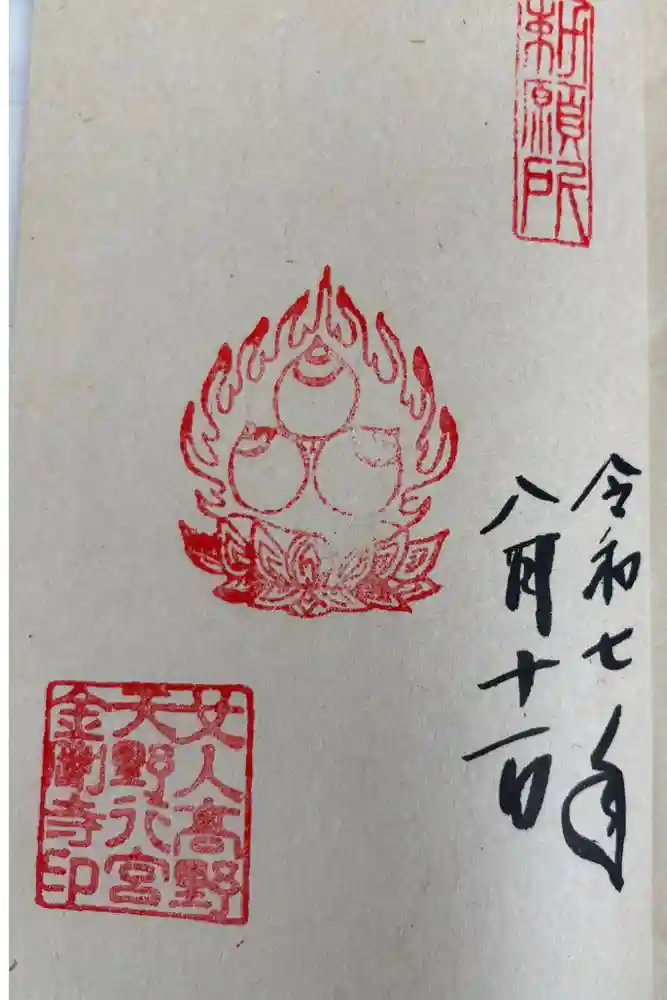 勅願所
令和七年
八月十一日
女人高野
天野行宮
金剛寺印